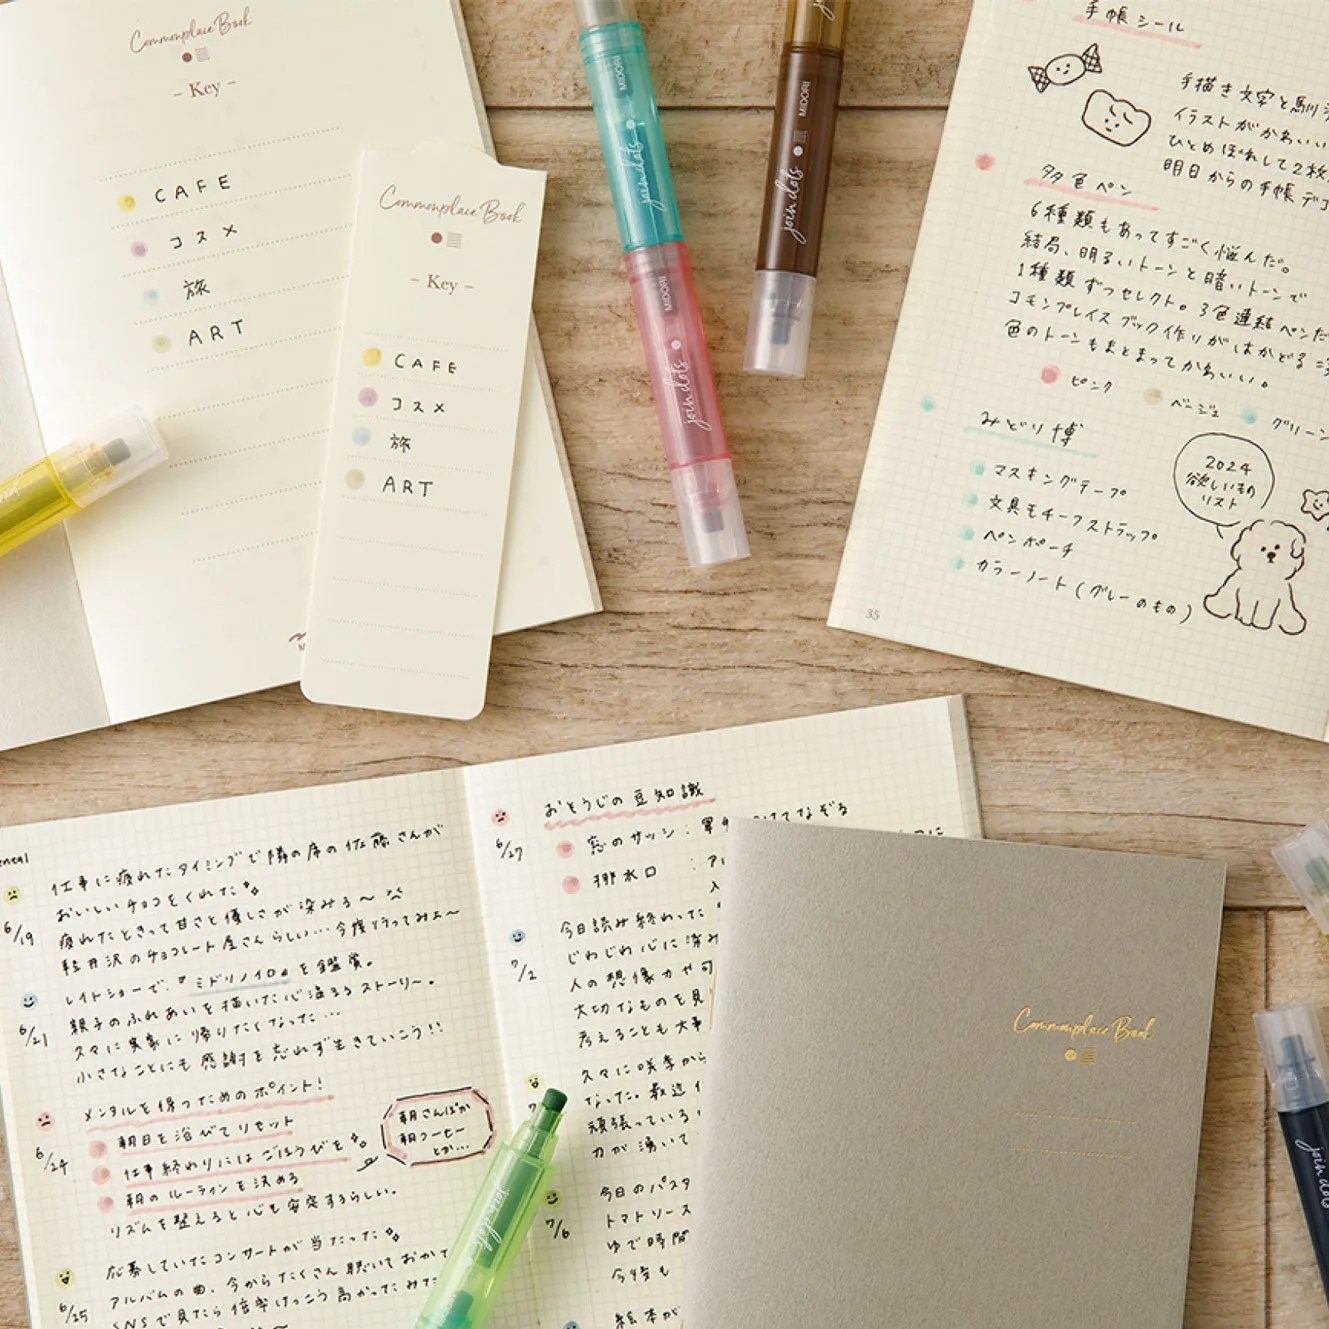 Commonplace Book
– Key –
CAFE
コスメ
旅
ART
Commonplace Book
– Key –
CAFE
コスメ
旅
ART
MIDORI
join dots
MIDORI
join dots
MIDORI
join dots
手帳シール
手描き文字と馴
イラストがかわいい
ひとめぼれして2枚
明日からの手帳デコ
多色ペン
6種類もあってすごく悩んだ。
結局、明るいトーンと暗いトーンで
1種類ずつセレクト。3色連結ペンだ
コモンプレイスブック作りがはかどる
色のトーンもまとまってかわいい。
ピンク
ベージュ
グリーン
みどり博
マスキングテープ
文具モチーフストラップ
ペンポーチ
カラーノート(グレーのもの)
2024
欲しいもの
リスト
35
6/19
仕事に疲れたタイミングで隣の席の佐藤さんが
おいしいチョコをくれた
疲れたときって甘さと優しさが染みる〜
軽井沢のチョコレート屋さんらしい…今度行ってみよ〜
6/21
レイトショーで、『ミドリノイロ』を鑑賞。
親子のふれあいを描いた心温まるストーリー。
久々に実家に帰りたくなった…
小さなことにも感謝を忘れず生きていこう!!
6/24
メンタルを保つためのポイント!
朝日を浴びてリセット
仕事終わりにはごほうびを
朝のルーティンを決める
リズムを整えると心も安定するらしい。
朝さんぽか
朝コーヒー
とか…
6/25
応募していたコンサートが当たった
アルバムの曲、今からたくさん聴いておかて
SNSで見たら倍率けっこう高かったみた
6/27
おとうじの豆知識
窓のサッシ:軍
てなぞる
排水口:
7/2
今日読み終わった
じわじわ心に染み
人の想像力や可
大切なものを見
考えることも大事
久々に咲季から
なった。最近
頑張っている
力が湧いて
7/6
今日のパスタ
トマトソース
ゆで時間
今度も
絵本が
Commonplace Book
join dots
join dots